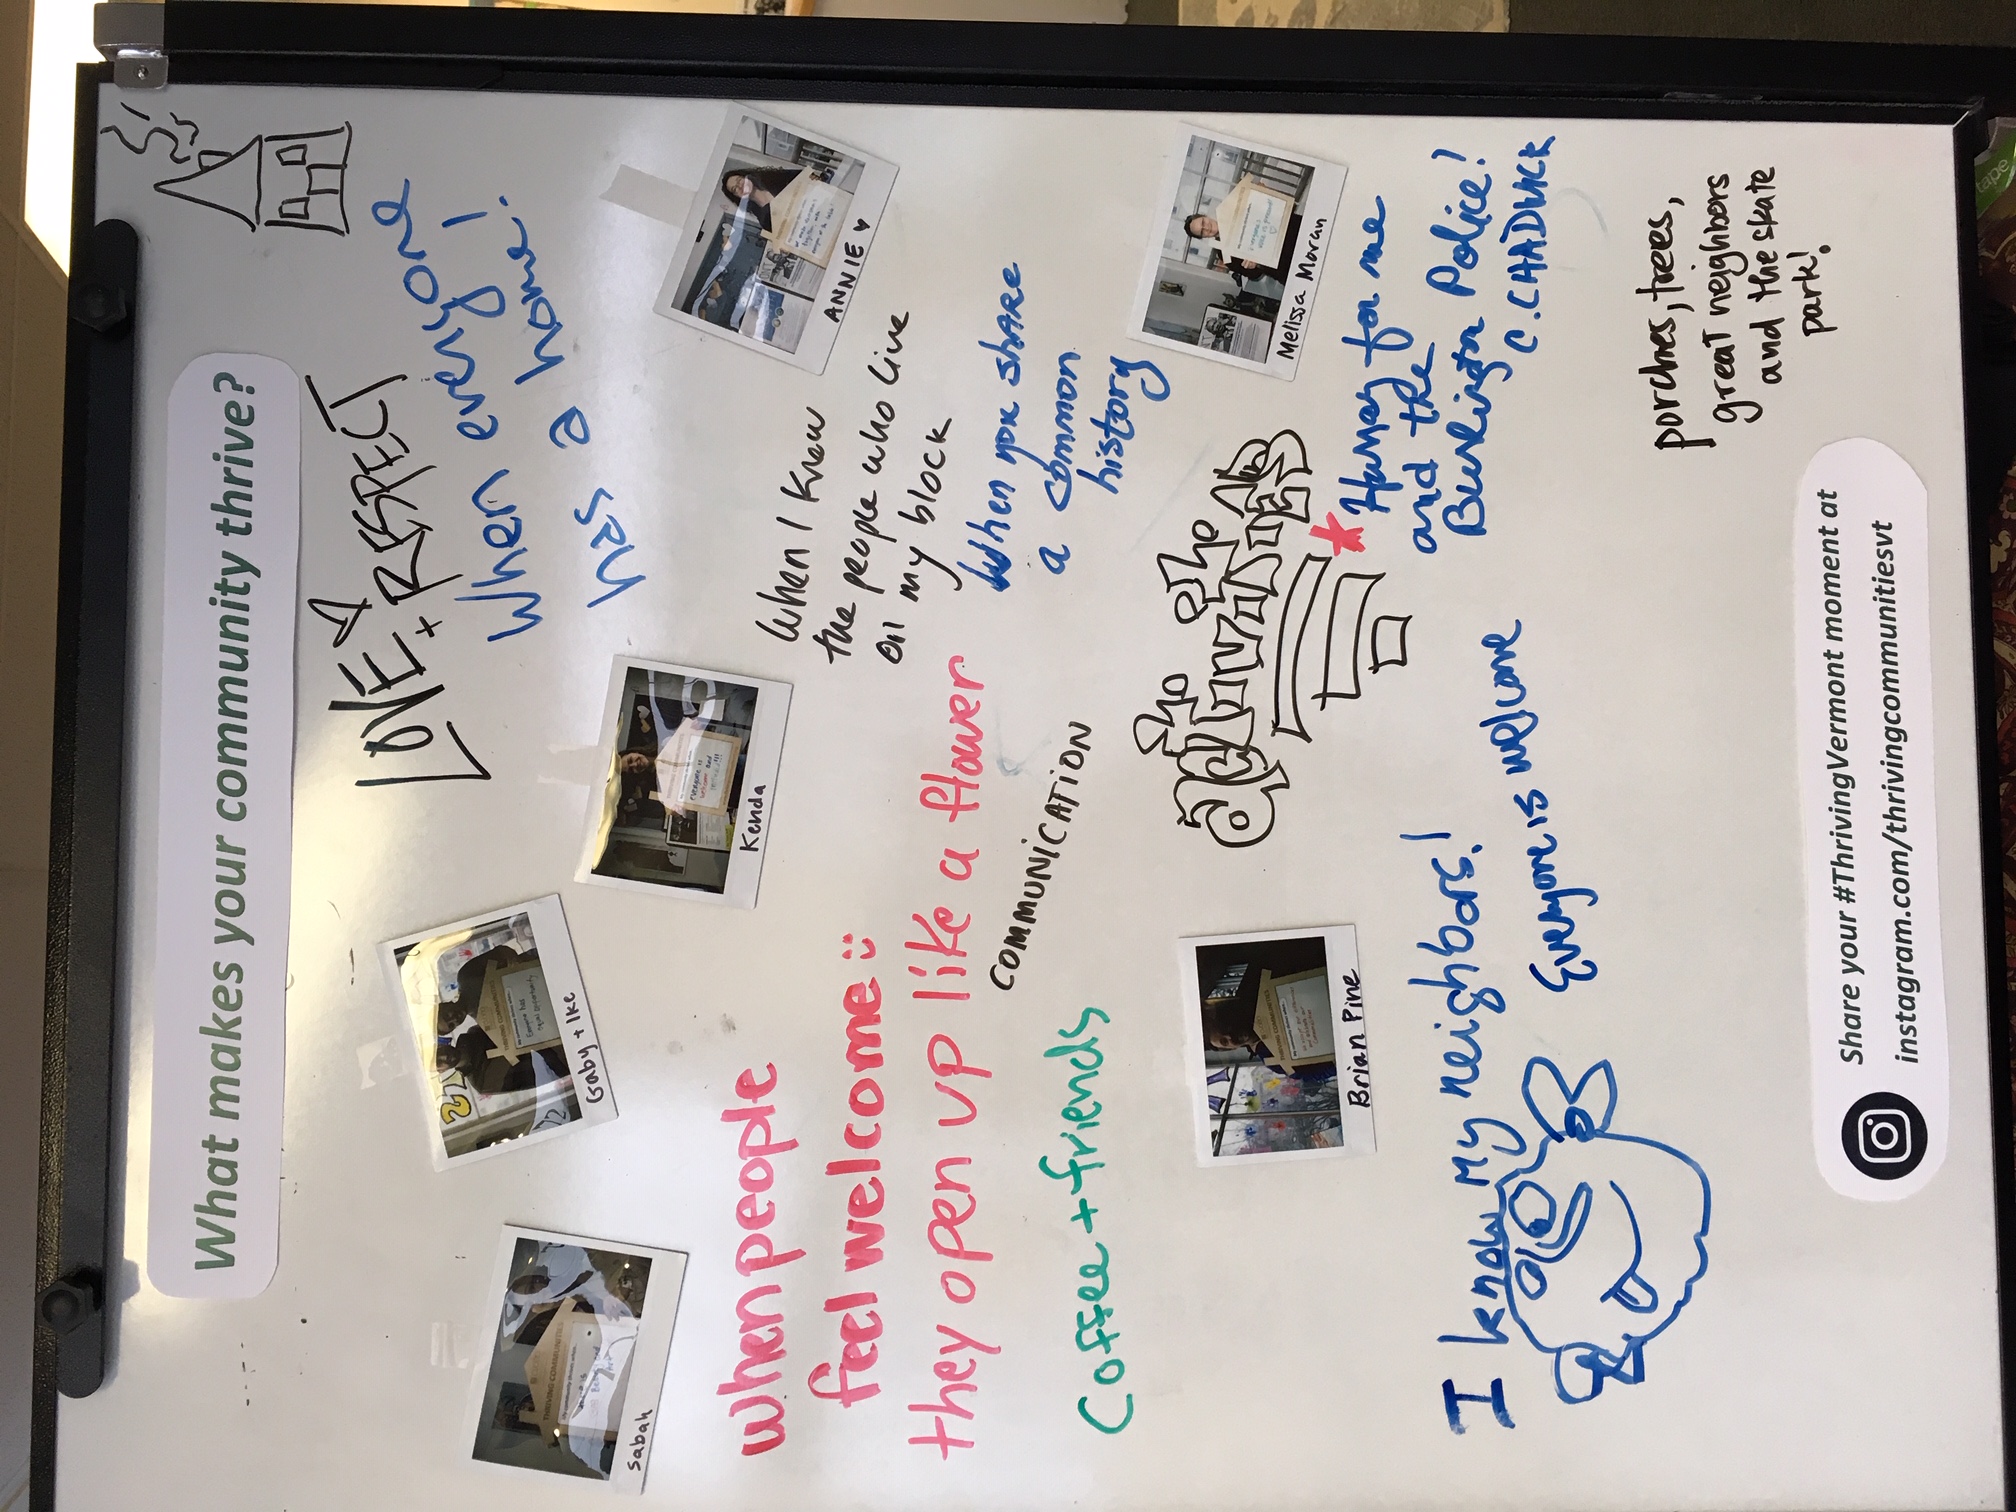 What makes your community thrive?
LOVE
+ RESPECT
When everyone
has a home!
Sabah
THRIVING COMMUNITIES
Gaby + Ike
THRIVING COMMUNITIES
Everyone has
equal opportunity
Kenda
everyone is
welcome and
ANNIE
When people
feel welcome
they open up like a flower
When I know
the people who live
on my block
When you share
a common
history
COMMUNICATION
Coffee + friends
Brian Pine
THRIVING COMMUNITIES
Melissa Moran
Hurray for me
and the
Burlington Police!
C. CHADWICK
I know my neighbors!
Everyone is welcome
porches, trees,
great neighbors
and the skate
park!
Share your #ThrivingVermont moment at
instagram.com/thrivingcommunitiesvt
tape